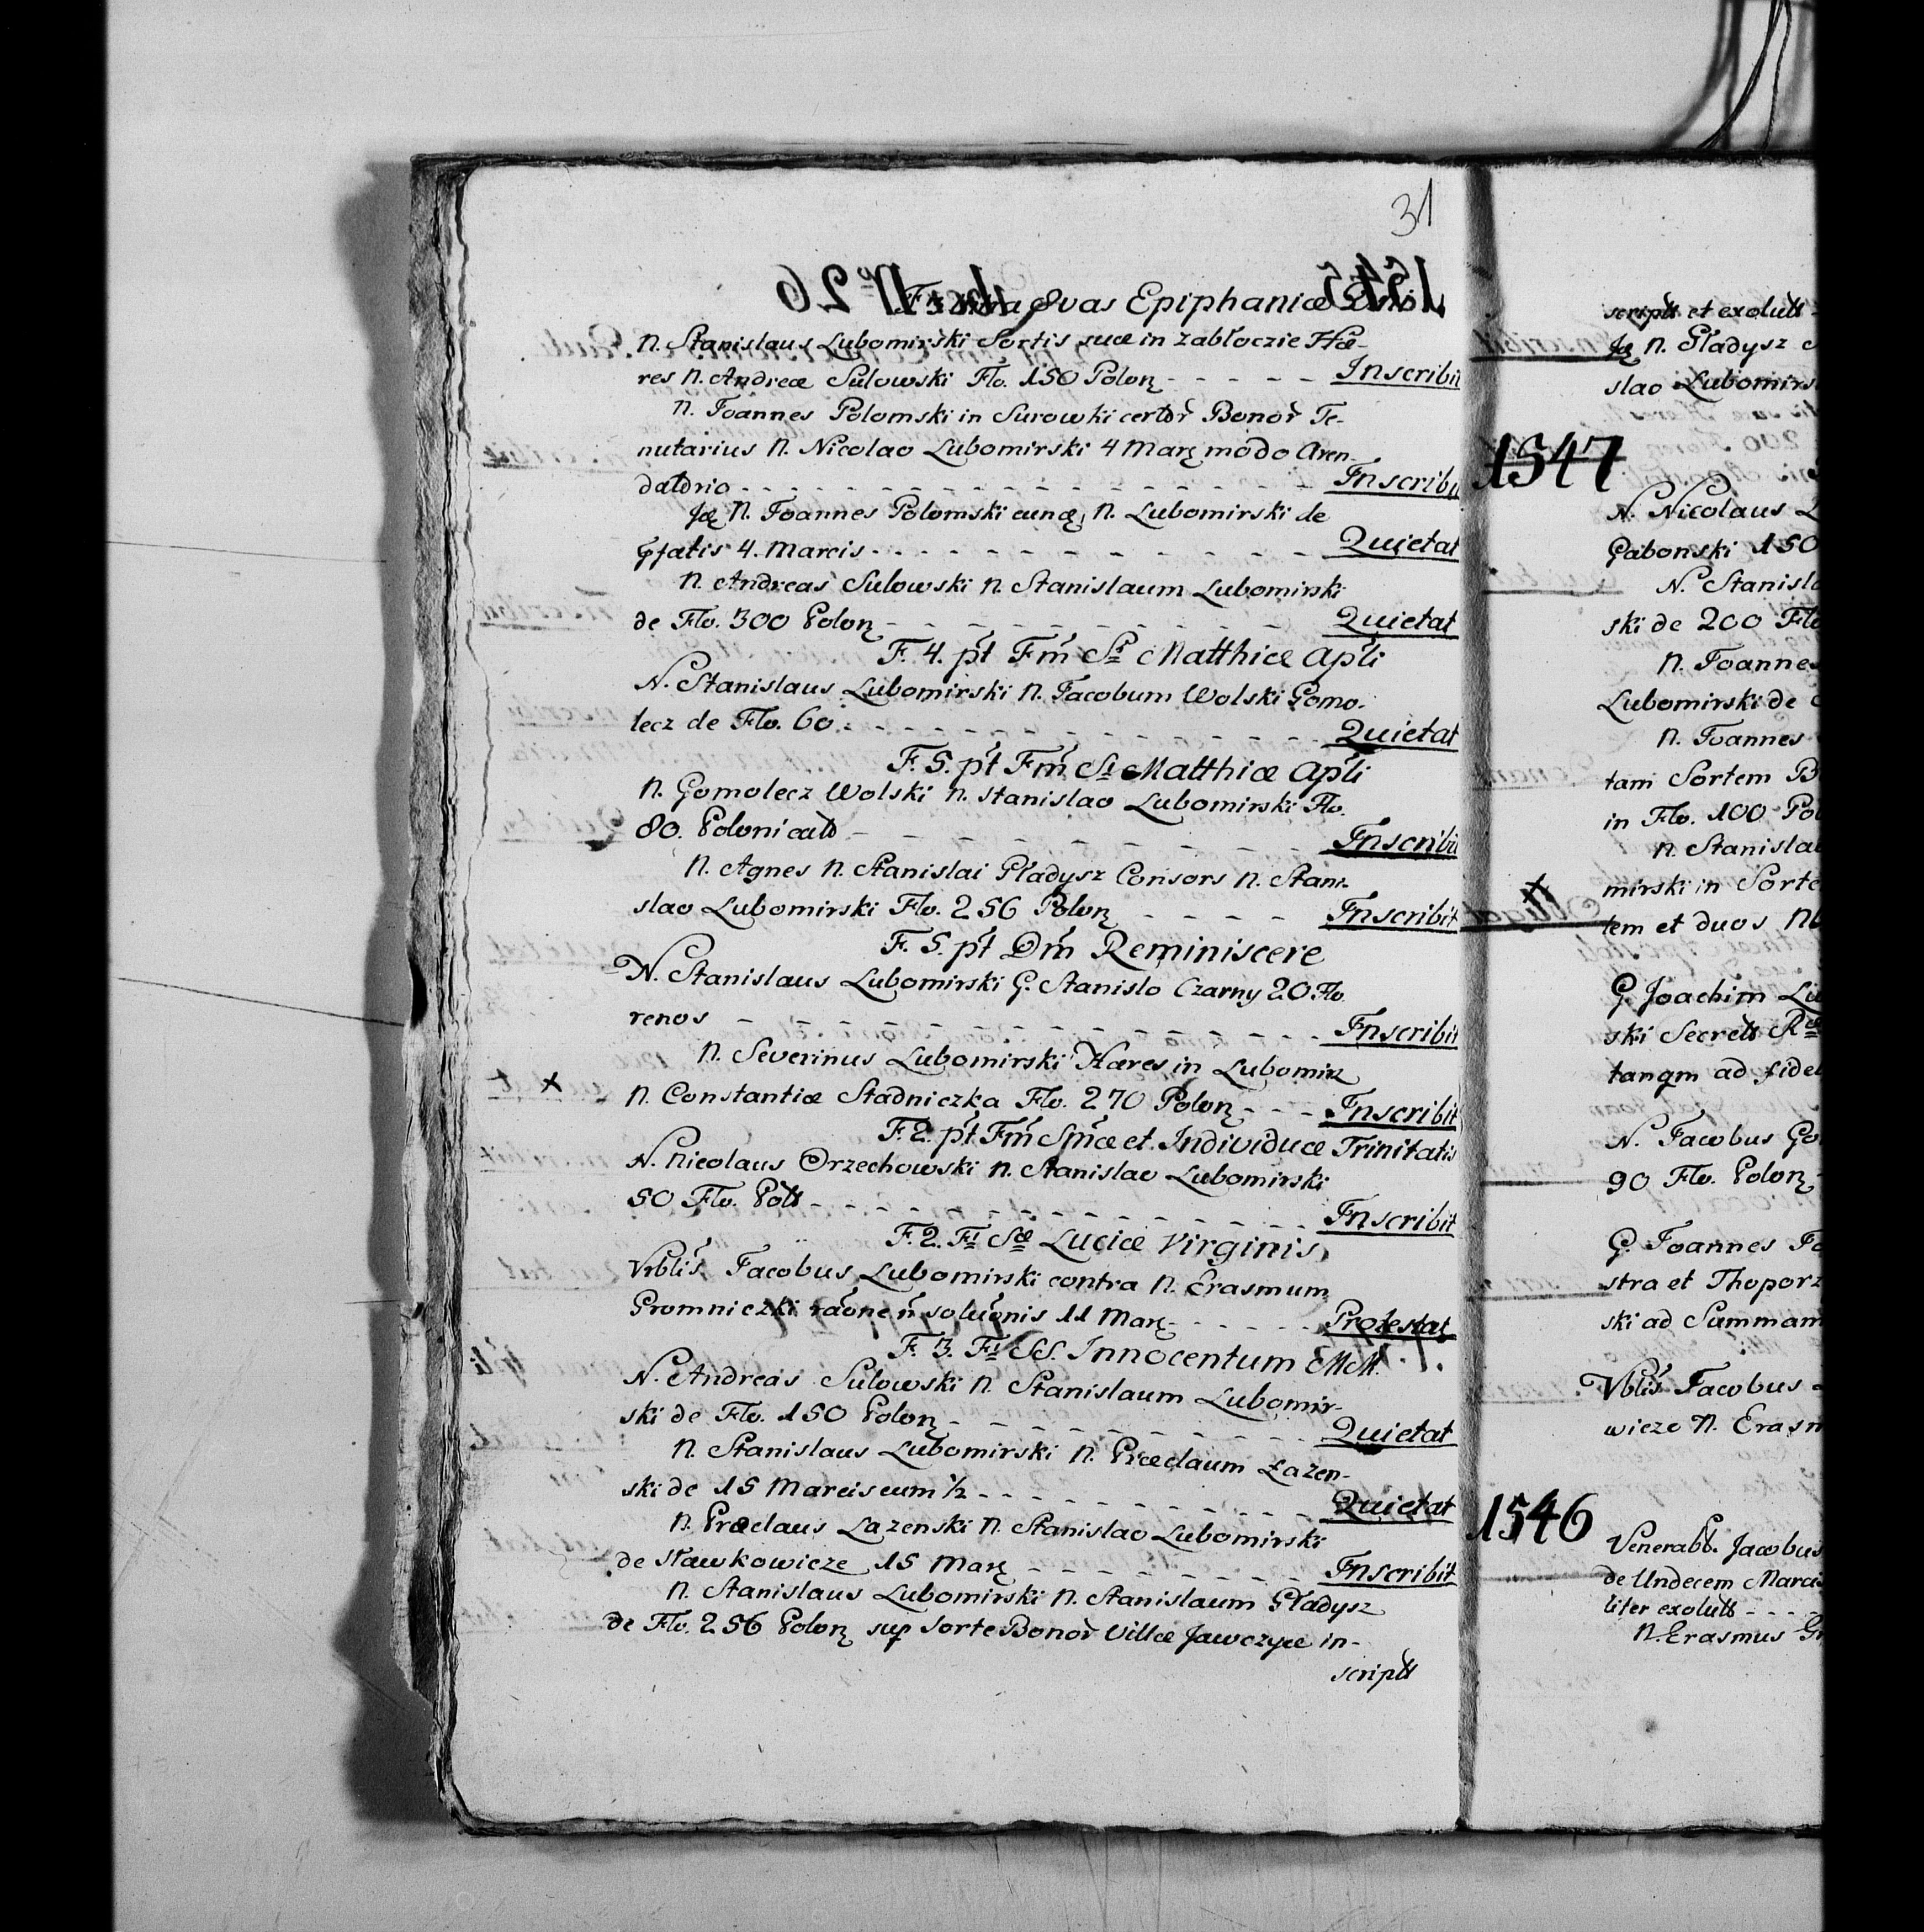 31
8vas Epiphaniæ
N. Stanislaus Lubomirski Sortis suæ in Zabłoczie Hæ-
res N. Andreæ Sulowski Flo. 150 Polon - - - - - Inscribit
N. Joannes Polomski in Surowki certor Bonor Te-
nutarius N. Nicolao Lubomirski 4 Marc modo Aren-
datorio - - - - - - - - - - Inscribit
Id N. Joannes Polomski eund N. Lubomirski de
pfatis 4. Marcis - - - - - - - - Quietat
N. Andreas Sulowski N. Stanislaum Lubomirski
de Flo. 300 Polon - - - - - - - Quietat
F. 4. pt Fm Sti Matthiæ Apli
N. Stanislaus Lubomirski N. Jacobum Wolski Gomo-
lecz de Flo. 60 - - - - - - - - Quietat
F. 5. pt Fm. Sti Matthiæ Apli
N. Gomolecz Wolski N. Stanislao Lubomirski Flo.
80. Polonical - - - - - - - - Inscribit
N. Agnes N. Stanislai Gładysz Consors N. Stani-
slao Lubomirski Flo. 256 Polon - - - - Inscribit
F. 5. pt Dm Reminiscere
N. Stanislaus Lubomirski G. Stanislo Czarny 20. Flo
renos - - - - - - - - - - Inscribit
N. Severinus Lubomirski Hæres in Lubomirz
x N. Constantiæ Stadniczka Flo. 270 Polon - - - Inscribit
F. 2. pt Fm Smæ et Individuæ Trinitatis
N. Nicolaus Orzechowski N. Stanislao Lubomirski
50 Flo. Poll - - - - - - - - Inscribit
F. 2. Fi Stæ Luciæ Virginis
Nblis Jacobus Lubomirski contra N. Erasmum
Gromniczki raone n soluonis 11 Marc - - - - - Protestat
F. 3. Fi SS. Innocentum MM.
N. Andreas Sulowski N. Stanislaum Lubomir-
ski de Flo. 150 Polon - - - - - - Quietat
N. Stanislaus Lubomirski N. Præclaum Łazen-
ski de 15 Marcis cum ½ - - - - - - Quietat
N. Præclaus Lazenski N. Stanislao Lubomirski
de Sławkowicze 15 Marc - - - - - - Inscribit
N. Stanislaus Lubomirski N. Stanislaum Gładysz
de Flo. 256 Polon sup Sorte Bonor Villæ Jawczyce in-
script
script et exolut
Id N. Gładysz
slao Lubomirs
1547
N. Nicolaus L
Gabonski 150
N. Stanisla
ski de 200 Flo
N. Joannes
Lubomirski de
N. Joannes
tam Sortem B
in Flo. 100 Pol
N. Stanisla
mirski in Sorte
tem et duos
G. Joachim Lu
ski Secret
tanqm ad fidel
N. Jacobus Go
90 Flo. Polon
G. Joannes
stra et Thoporz
ski ad Summam
Nblis Jacobus
wicze N. Erasm
1546
Venerab. Jacobus
de Undecem Marcis
liter exolut - - -
N. Erasmus Gr